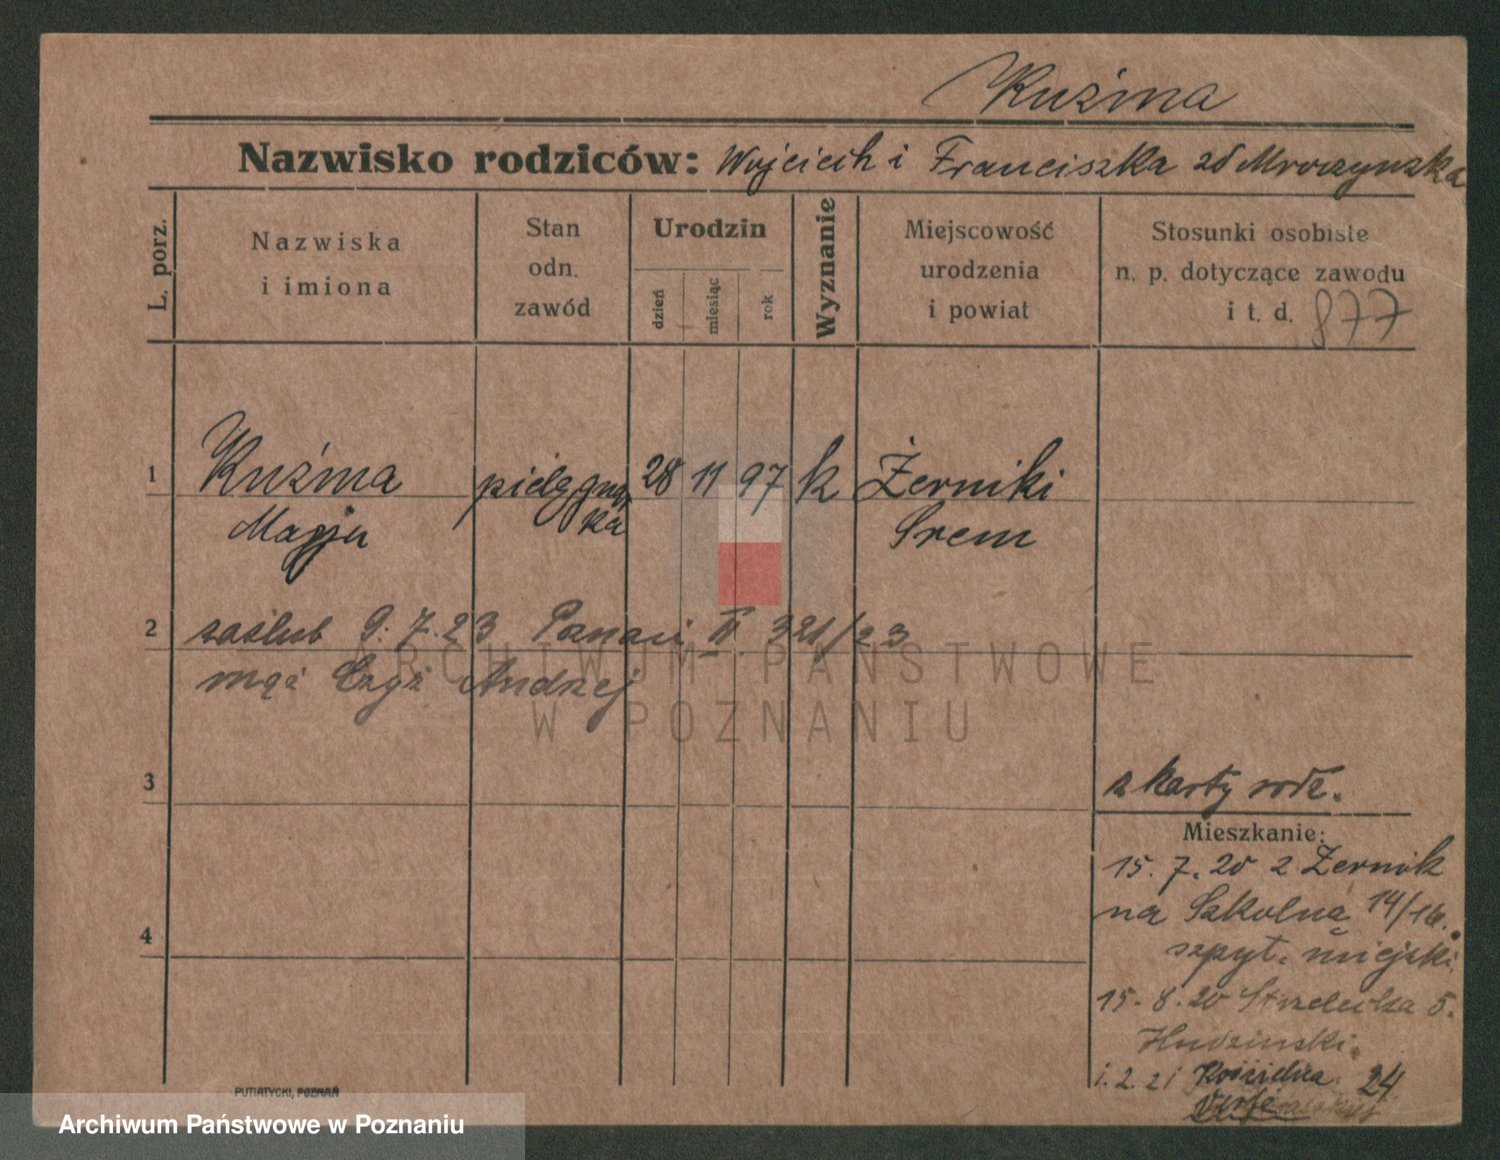 Kuźma
Nazwisko rodziców: Wojciech i Franciszka zd Mroczynska
L. porz.
Nazwiska
i imiona
Stan
odn.
zawód
Urodzin
dzień
miesiąc
rok
Wyznanie
Miejscowość
urodzenia
i powiat
Stosunki osobiste
n. p. dotyczące zawodu
i t. d. 877
1 Kuźma pielęgniar 28 11 97 k Żerniki
Marja ka Śrem
2 zaślub 9. 7. 23 Poznań II. 321/23
mąż Andrzej
3
z karty rodz.
Mieszkanie:
15. 7. 20 z Żernik
4
na Szkolna 14/16.
szpyt. miejski
15. 8. 20 Strzelecka 5.
Hudzinski.
1. 2. 21 Kościelna 24
PUTIATYCKI, POZNAŃ
ARCHIWUM PAŃSTWOWE
W POZNANIU
Archiwum Państwowe w Poznaniu